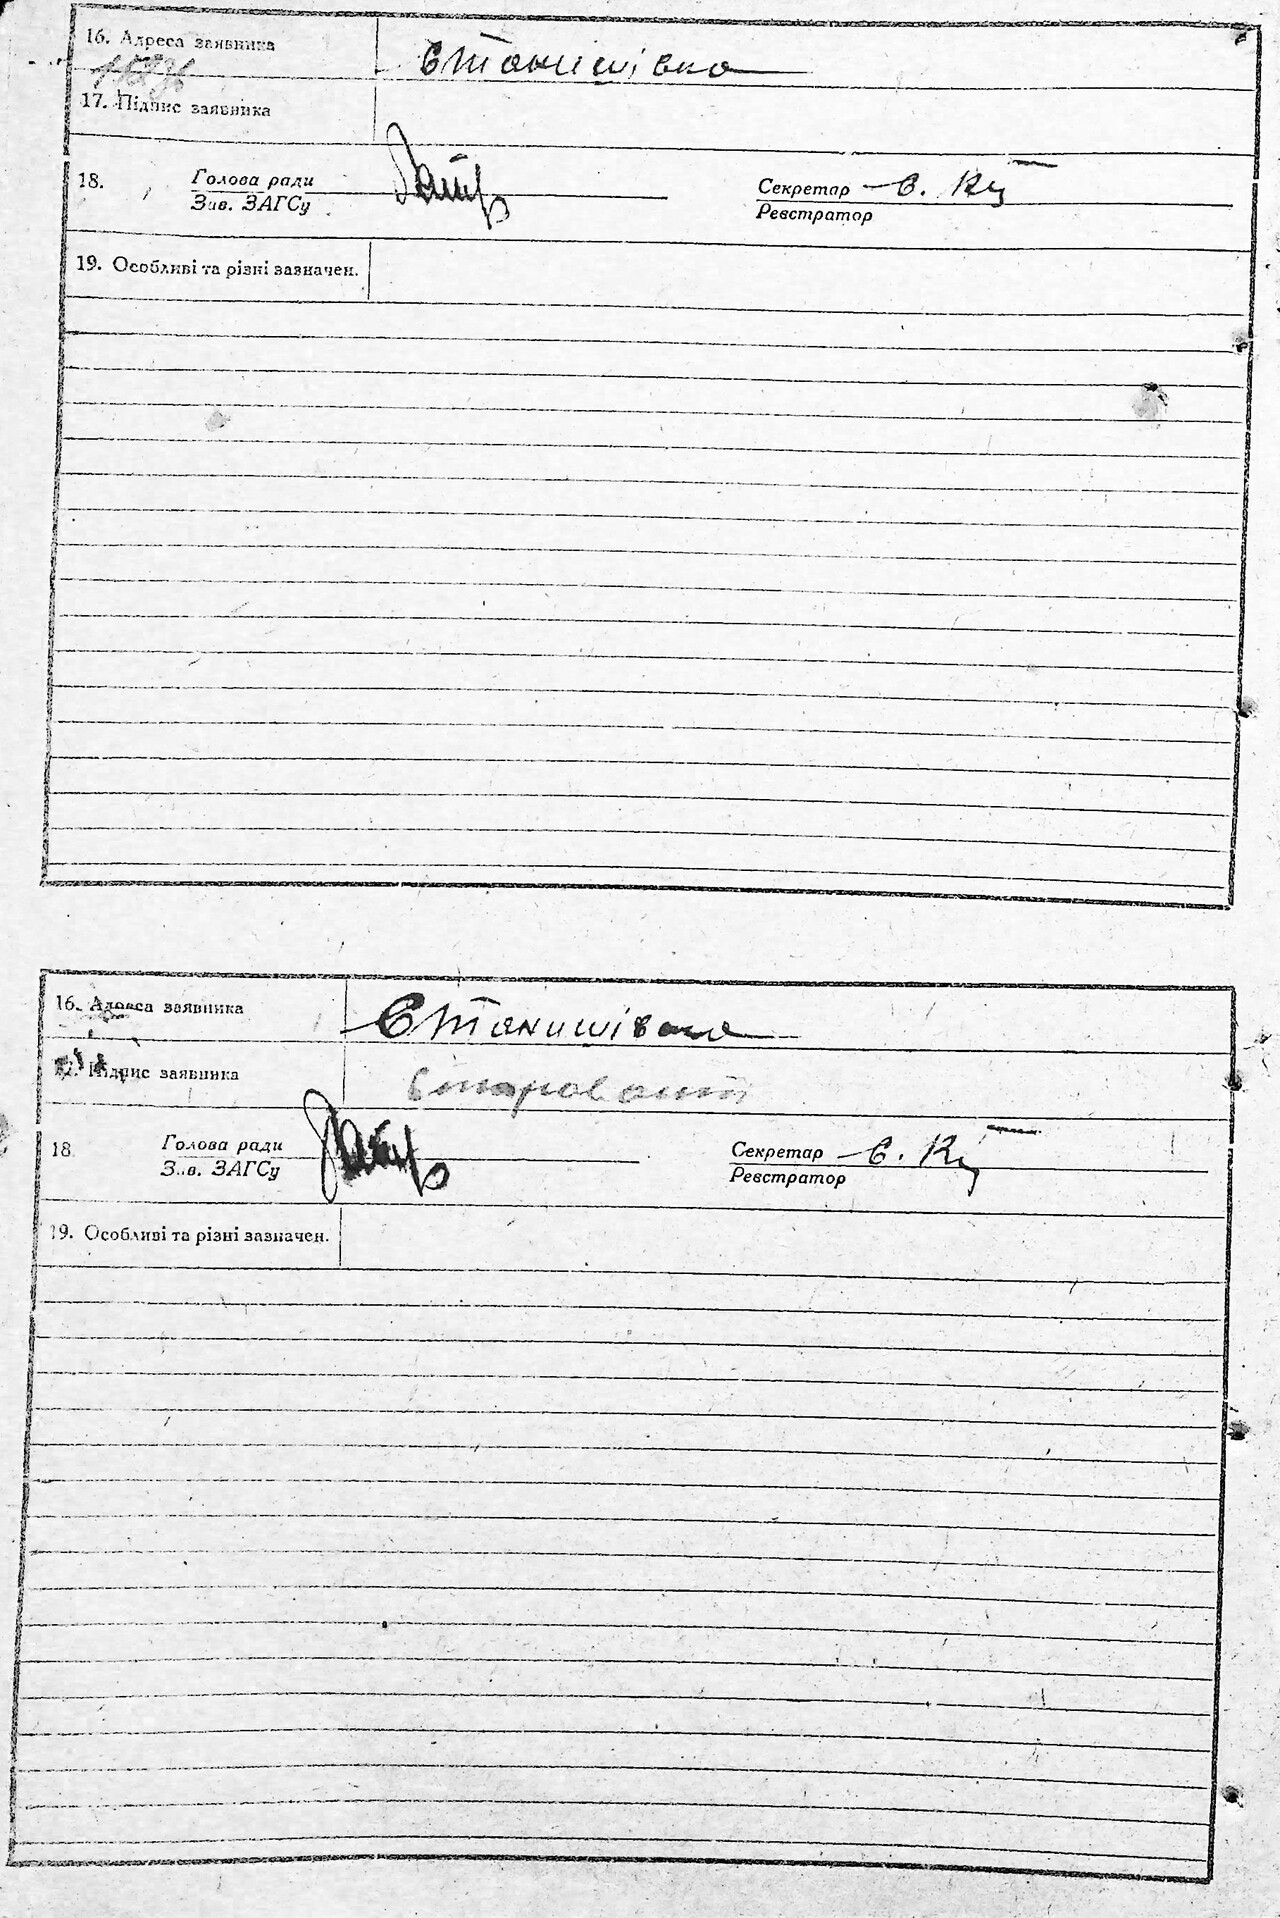 16. Адреса заявника Станишівка
17. Підпис заявника
18. Голова ради Секретар
Зав. ЗАГСу Реєстратор
19. Особливі та різні зазначен.
16. Адреса заявника Станишівка
17. Підпис заявника
18 Голова ради Секретар
Зав. ЗАГСу Реєстратор
19. Особливі та різні зазначен.